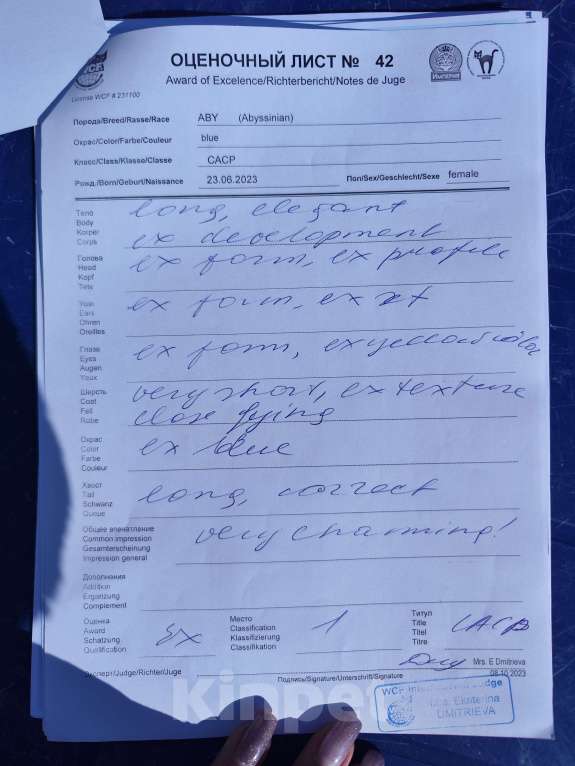 WCF
License WCF # 231100
ОЦЕНОЧНЫЙ ЛИСТ № 42
Award of Excelence/Richterbericht/Notes de Juge
Порода/Breed/Rasse/Race ABY (Abyssinian)
Окрас/Color/Farbe/Couleur blue
Класс/Class/Klasse/Classe CACP
Рожд./Born/Geburt/Naissance 23.06.2023 Пол/Sex/Geschlecht/Sexe female
Тело long, elegant
Body
Korper ex development
Corps
Голова ex form, ex profile
Head
Kopf
Tete
Уши ex form, ex set
Ears
Ohren
Oreilles
Глаза ex form, ex yellow color
Eyes
Augen
Yeux
Шерсть very short, ex texture
Coat
Fell close lying
Robe
Окрас ex blue
Color
Farbe
Couleur
Хвост long, correct
Tail
Schwanz
Queue
Общее впечатление very charming!
Common impression
Gesamterscheinung
Impression general
Дополнения
Addition
Erganzung
Complement
Оценка Место Титул
Award EX Classification 1 Title CACP
Schatzung Klassifizierung Titel
Qualification Klassifikation Titre
Mrs. E Dmitrieva
Эксперт/Judge/Richter/Juge Подпись/Signature/Unterschrift/Signature 08.10.2023
WCF International Judge
Mrs. Ekaterina
DMITRIEVA